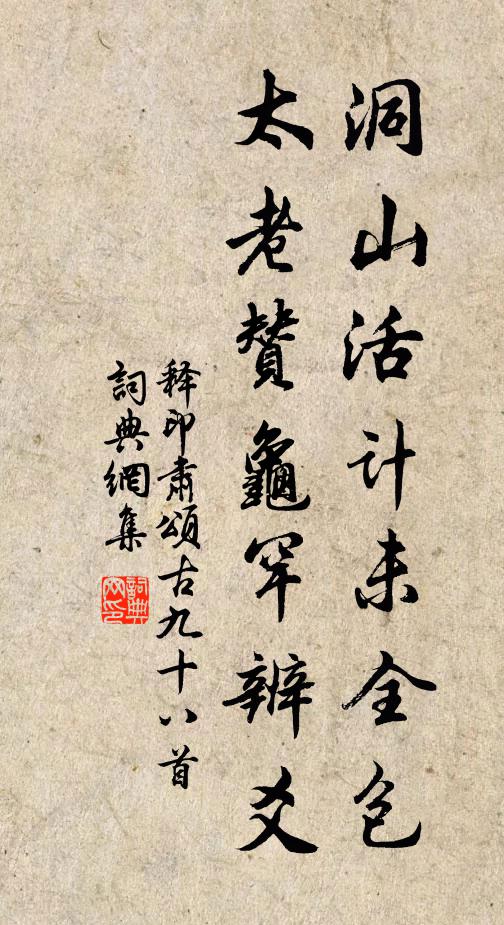 洞山活计未全包
太老赞龜罕辨爻
释印肃頌古九十八首
詞典網集